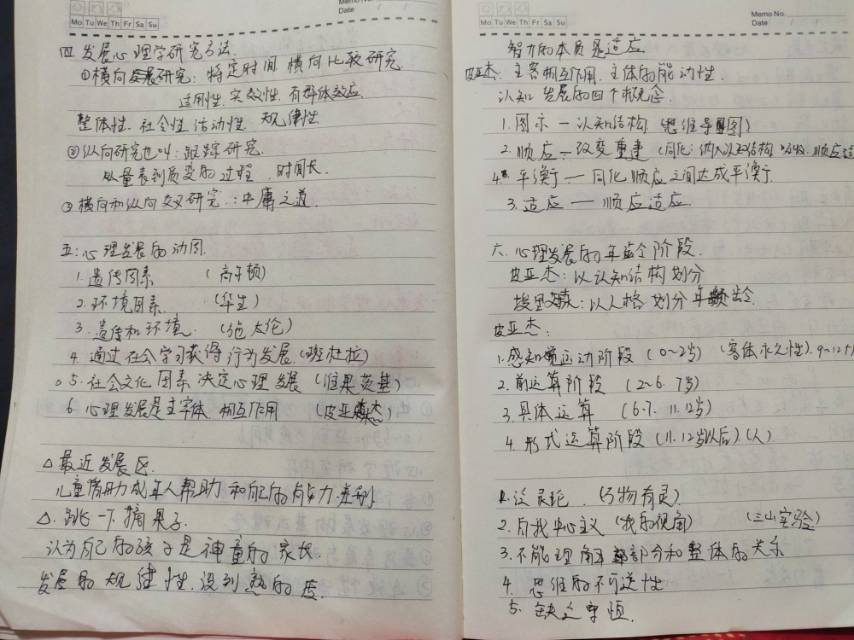 Mo Tu We Th Fr Sa Su
Memo No.
Date
四 发展心理学研究方法.
①横向发展研究: 特定时间 横向比较研究
适用性. 实效性. 有群体效应.
整体性. 社会性. 活动性. 规律性
②纵向研究也叫: 跟踪研究.
从量表到质变的过程. 时间长.
③横向和纵向交叉研究.: 中庸之道.
五: 心理发展的动因.
1. 遗传因素 (高尔顿)
2. 环境因素 (华生)
3. 遗传和环境. (施太伦)
4. 通过社会学习获得行为发展 (班杜拉)
5. 社会文化因素决定心理发展 (维果茨基)
6. 心理发展是主客体相互作用 (皮亚杰)
△最近发展区.
儿童借助成年人帮助和自己的能力差别
△. 跳一下摘果子.
认为自己的孩子是神童的家长.
发展的规律性. 没到熟的度.
Mo Tu We Th Fr Sa Su
Memo No.
Date
智力的本质是适应
皮亚杰: 主客相互作用. 主体的能动性.
认知发展的四个概念.
1. 图示 — 认知结构 (思维导图)
2. 顺应 — 改变重建 (同化: 纳入认知结构 顺应
4. 平衡 — 同化顺应之间达成平衡.
3. 适应 — 顺应适应.
六. 心理发展的年龄阶段.
皮亚杰: 以认知结构划分
埃里: 以人格划分年龄.
皮亚杰:
1. 感知运动阶段 (0~2岁) (客体永久性). 9~12
2. 前运算阶段 (2~6. 7岁)
3. 具体运算 (6.7. 11.12岁)
4. 形式运算阶段 (11. 12岁以后) (人)
1. 泛灵论. (万物有灵)
2. 自我中心主义 (我的视角) (三山实验)
3. 不能理解部分和整体的关系
4. 思维的不可逆性
5. 缺乏守恒.